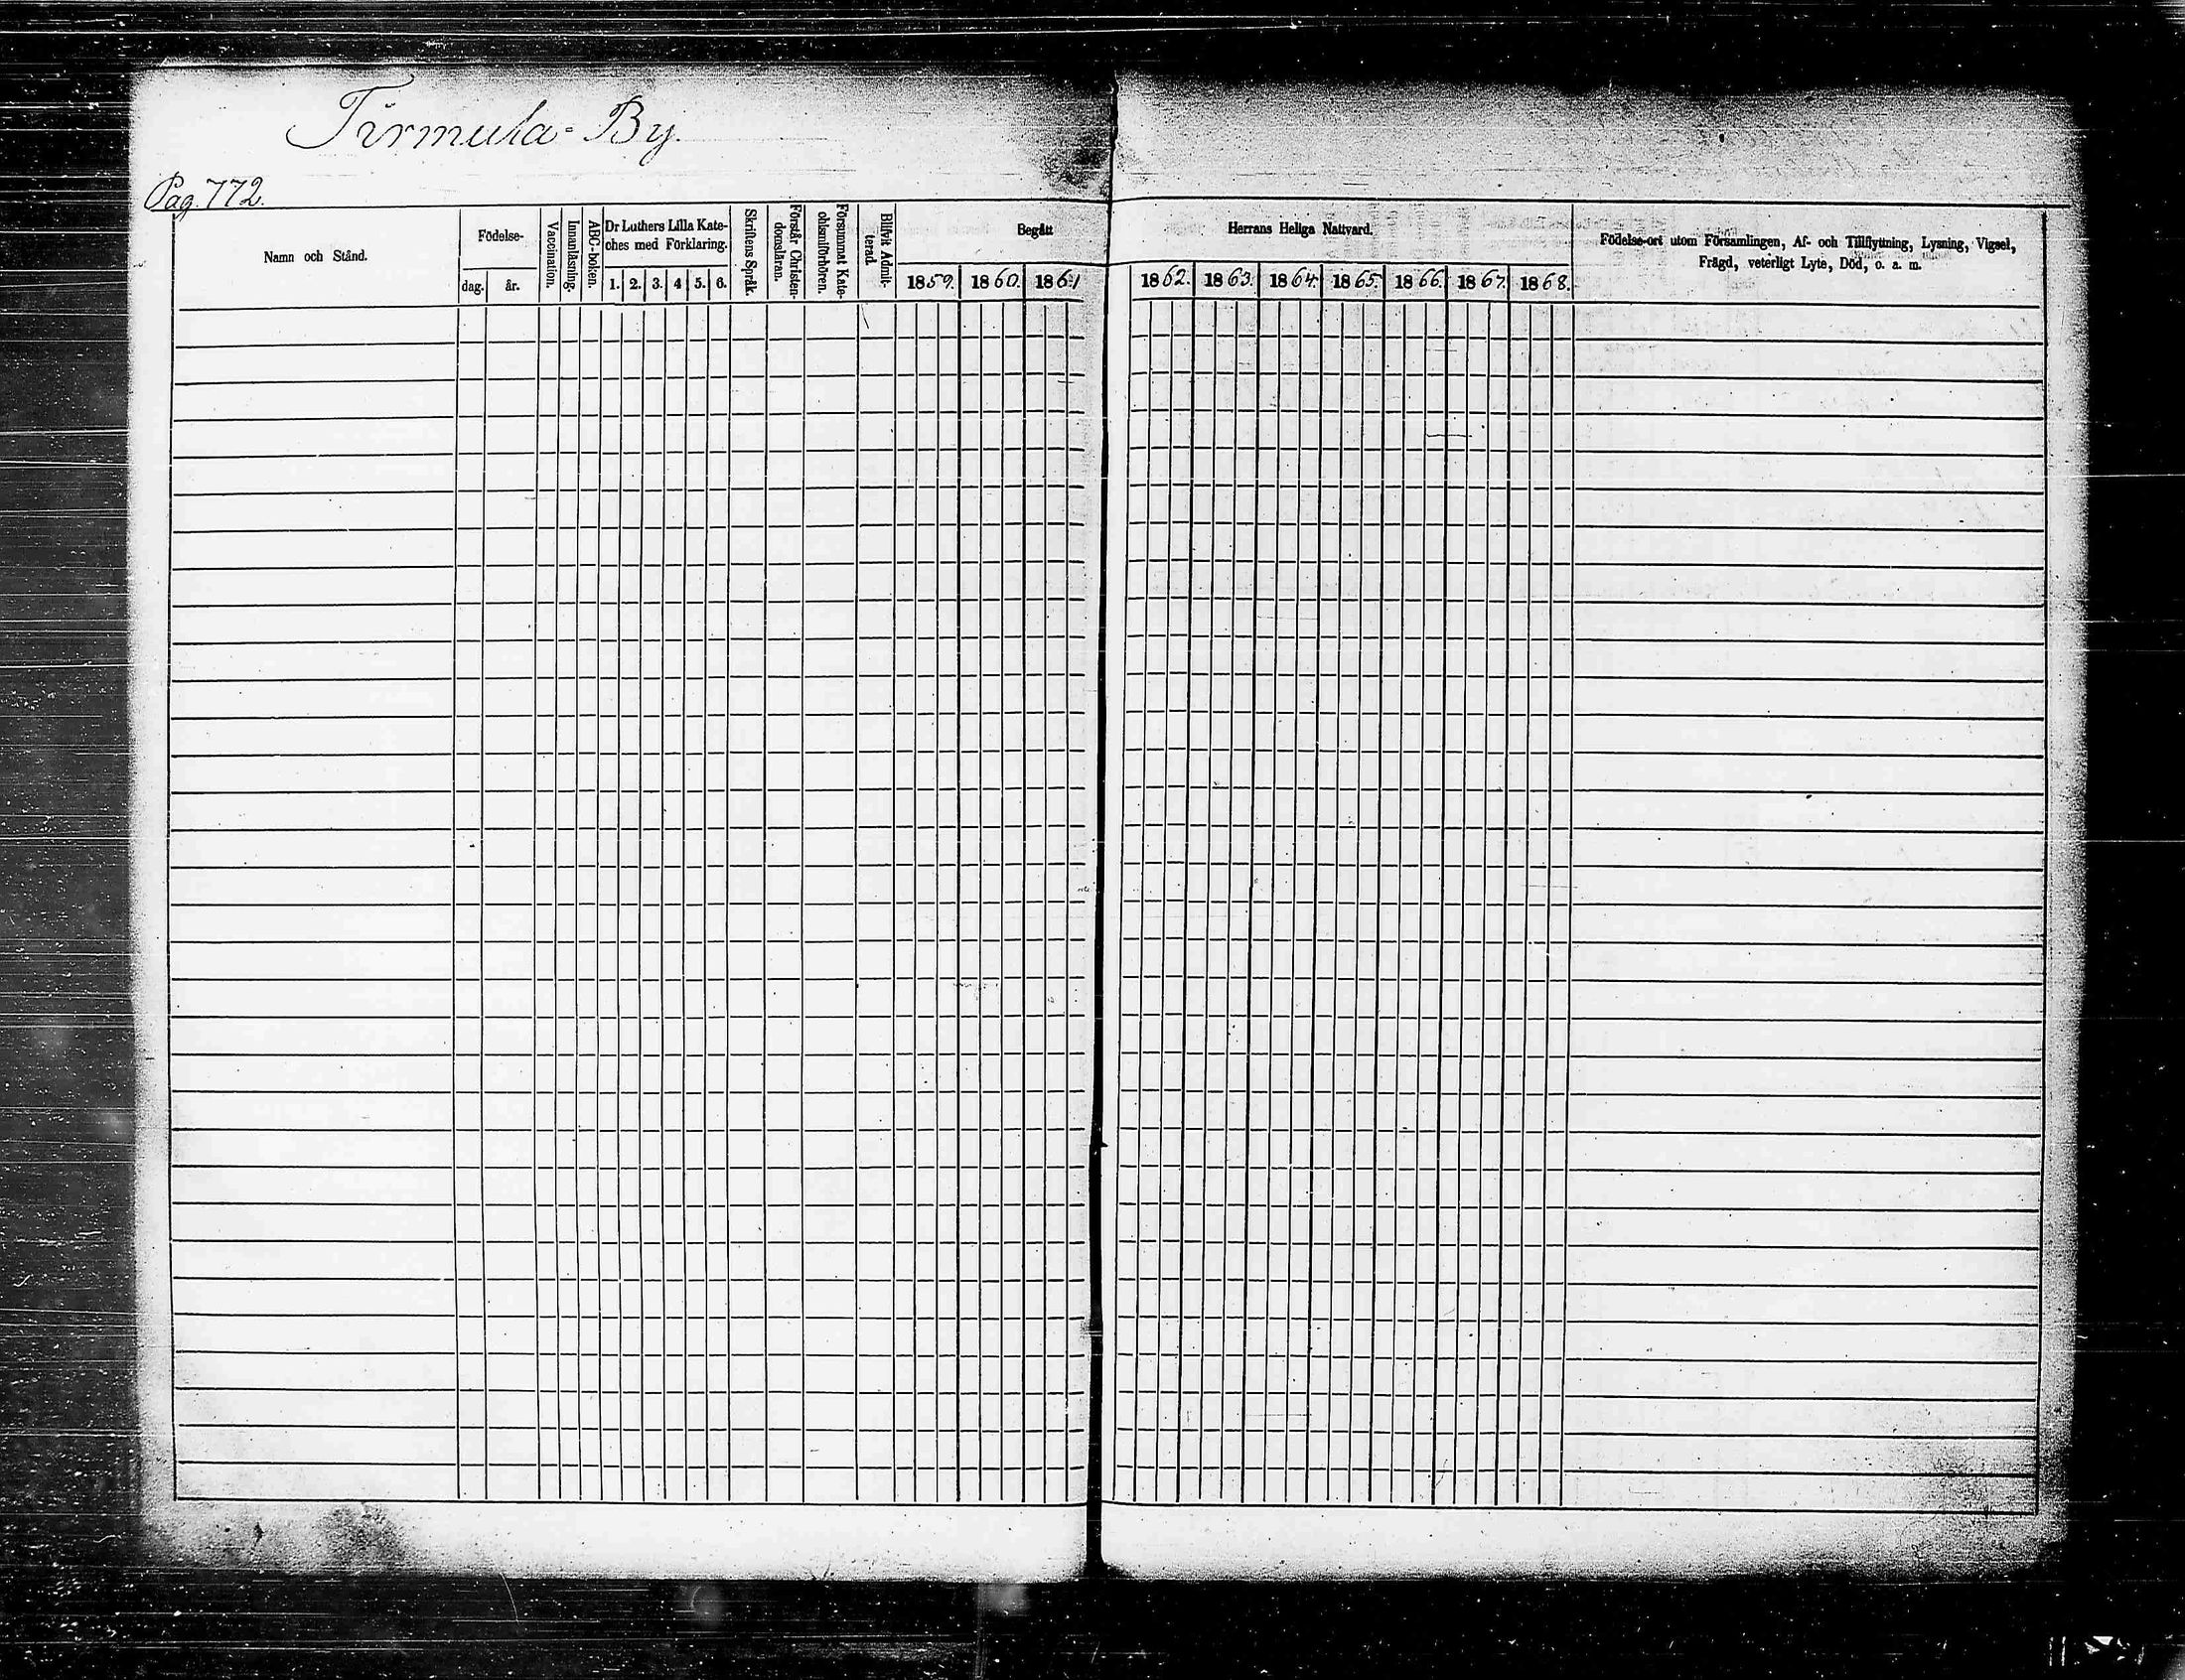 Tirmula-By.
Pag. 772.
Namn och Stånd.
Födelse-
dag.
år.
Vaccination.
Innanläsning.
ABC-boken.
Dr Luthers Lilla Kate-
ches med Förklaring.
1. 2. 3. 4 5. 6.
Skriftens Språk.
Förstår Christen-
domsläran.
Försummat Kate-
chismiförhören.
Blifvit Admit-
terad.
Begått
1859. 1860. 1861
Herrans Heliga Nattvard.
1862. 1863. 1864. 1865. 1866. 1867. 1868.
Födelse-ort utom Församlingen, Af- och Tillflyttning, Lysning, Vigsel,
Frägd, veterligt Lyte, Död, o. a. m.